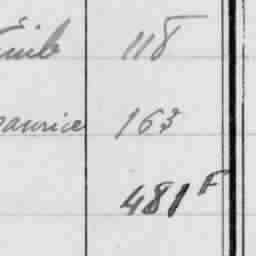 Émile 118
Maurice 163
481 F